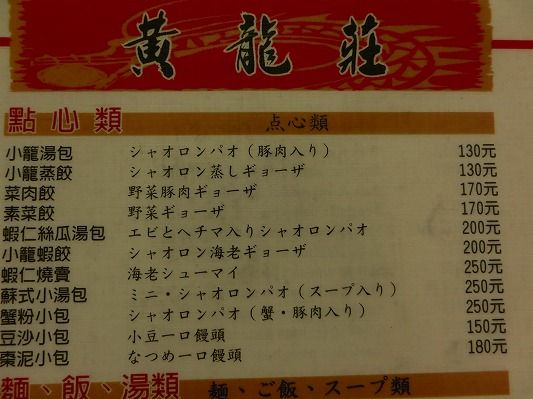 黃龍莊
點心類 点心類
小籠湯包 シャオロンパオ（豚肉入り） 130元
小籠蒸餃 シャオロン蒸しギョーザ 130元
菜肉餃 野菜豚肉ギョーザ 170元
素菜餃 野菜ギョーザ 170元
蝦仁絲瓜湯包 エビとヘチマ入りシャオロンパオ 200元
小籠蝦餃 シャオロン海老ギョーザ 200元
蝦仁燒賣 海老シューマイ 250元
蘇式小湯包 ミニ・シャオロンパオ（スープ入り） 250元
蟹粉小包 シャオロンパオ（蟹・豚肉入り） 250元
豆沙小包 小豆一口饅頭 150元
棗泥小包 なつめ一口饅頭 180元
麵、飯、湯類 麺、ご飯、スープ類